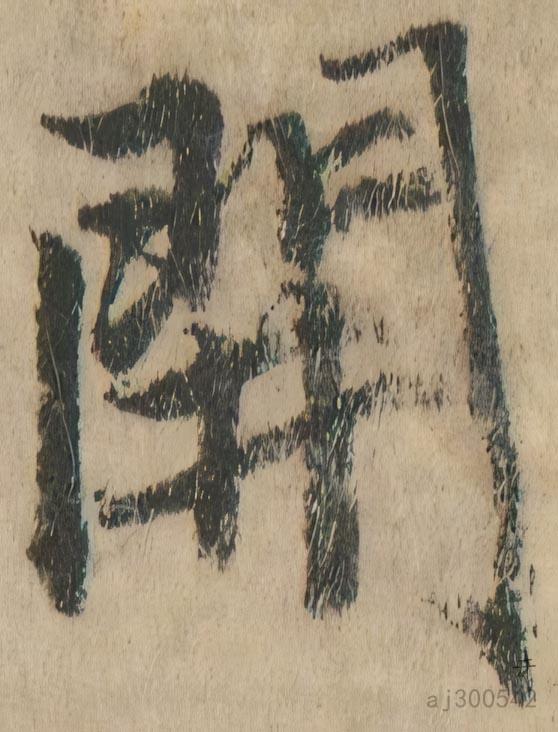 開
aj300542